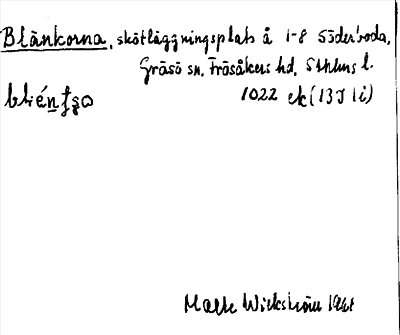 Blänkorna, skötläggningsplats å 1-8 Söderboda,
Gräsö sn. Frösåkers hd. Sthlms l.
1022 ek (13J 1i)
Malte Wickström 1961